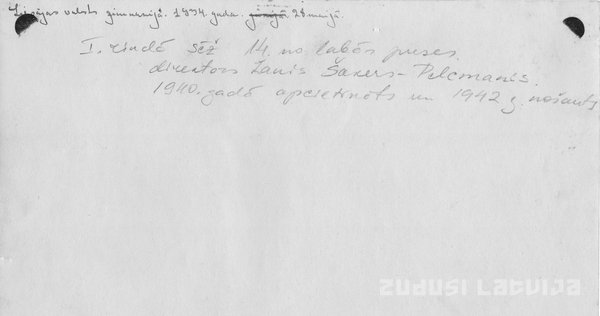 Liepājas valsts ģimnazijā. 1934. gada. junijā 28. maijā.
I. rindā sēž 14. no labās puses
direktors Žanis Šakers-Pelcmanis.
1940. gadā apcietināts un 1942 g. nošauts
ZUDUSI LATVIJA